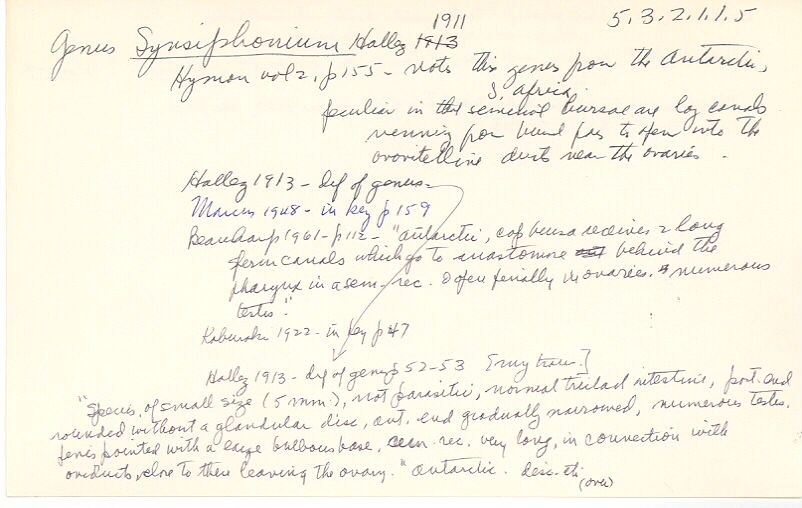 1911
5.3.2.1.1.5
Genus Synsiphonium Hallez 1913
Hyman vol 2, p 155 - notes this genus from the Antarctic,
S. Africa
peculiar in that seminal bursae are long canals
running from bursal pas to open into the
ovovitelline ducts near the ovaries.
Hallez 1913 - def of genus
Marcus 1948 - in key p 159
Beauchamp 1961 - p 112 - "antarctic, cop bursa receives 2 long
sperm canals which go to anastomose behind the
pharynx in a sem. rec. & open finally in ovaries. numerous
testis."
Kaburaki 1922 - in key p 47
Hallez 1913 - def of genus p 52-53 [my trans.]
"Species, of small size (5 mm), not parasitic, normal triclad intestine, post. end
rounded without a glandular disc, ant. end gradually narrowed, numerous testes.
penis pointed with a large bulbous base, sem. rec. very long, in connection with
oviducts, close to there leaving the ovary." antarctic.
(over)